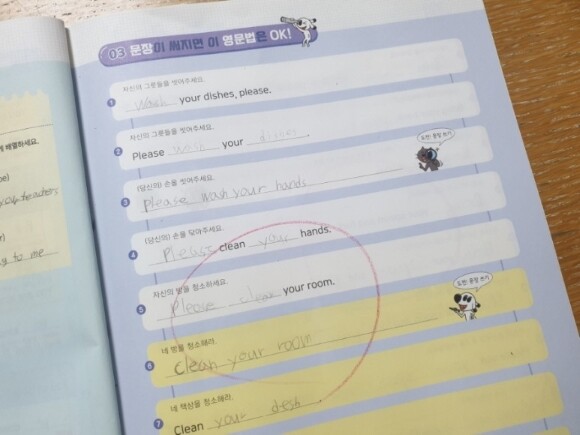 03 문장이 써지면 이 영문법은 OK!
자신의 그릇들을 씻어주세요.
1 Wash your dishes, please.
자신의 그릇들을 씻어주세요.
2 Please wash your dishes.
도전! 문장 쓰기
(당신의) 손을 씻어주세요.
3 please wash your hands
(당신의) 손을 닦아주세요.
4 Please clean your hands.
자신의 방을 청소하세요.
5 Please clean your room.
도전! 문장 쓰기
네 방을 청소해라.
6 clean your room
네 책상을 청소해라.
7 Clean your desk.
배열하세요.
teachers
to me